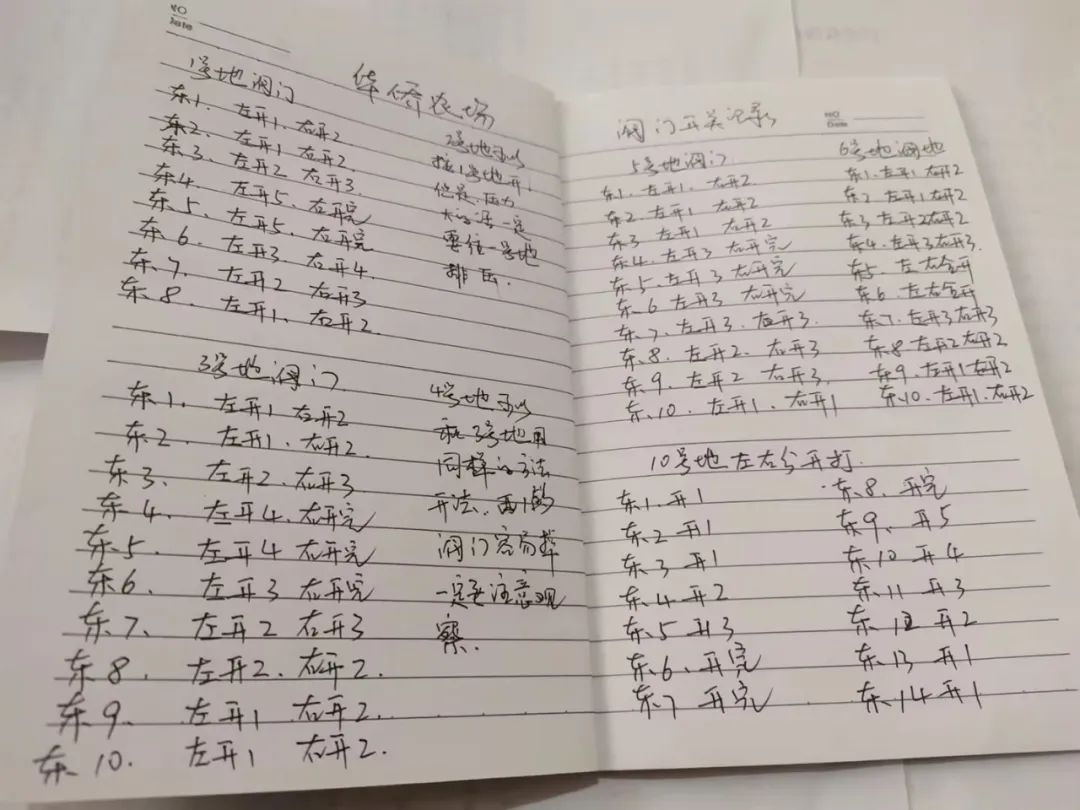 NO
Date
华侨农场
1号地阀门
东1、左开1、右开2
东2、左开1 右开2
东3、左开2 右开3
东4、左开5、右开完
东5、左开5、右开完
东6、左开3、右开4
东7、左开2 右开3
东8、左开1、右开2
2号地可以
按1号地开
但是、压力
大的话一定
要往一号地
排压.
3号地阀门
东1、左开1 右开2
东2、左开1、右开2
东3、左开2、右开3
东4、左开4、右开完
东5、左开4 右开完
东6、左开3 右开完
东7、左开2 右开3
东8、左开2、右开2.
东9、左开1 右开2.
东10、左开1 右开2.
4号地可以
和3号地用
同样的方法
开法、西1的
阀门容易掉
一定要注意观
察.
阀门开关记录
NO
Date
5号地阀门
东1、左开1、右开2
东2、左开1 右开2
东3 左开1 右开2
东4、左开3 右开完
东5、左开3 右开完
东6 左开3 右开完
东7、左开3、右开3.
东8、左开2、右开3
东9、左开2 右开3.
东10、左开1、右开1
6号地阀地
东1、左开1 右开2
东2、左开1 右开2
东3 左开2右开2
东4、左开3右开3.
东5、左右全开
东6、左右全开
东7、左开3右开3
东8、左开2右开2
东9、左开1右开2
东10、左开1、右开2
10号地左右分开打.
东1、开1
东2 开1
东3 开1
东4 开2
东5 开3
东6、开完
东7 开完
东8、开完
东9、开5
东10 开4
东11 开3
东12 开2
东13 开1
东14 开1